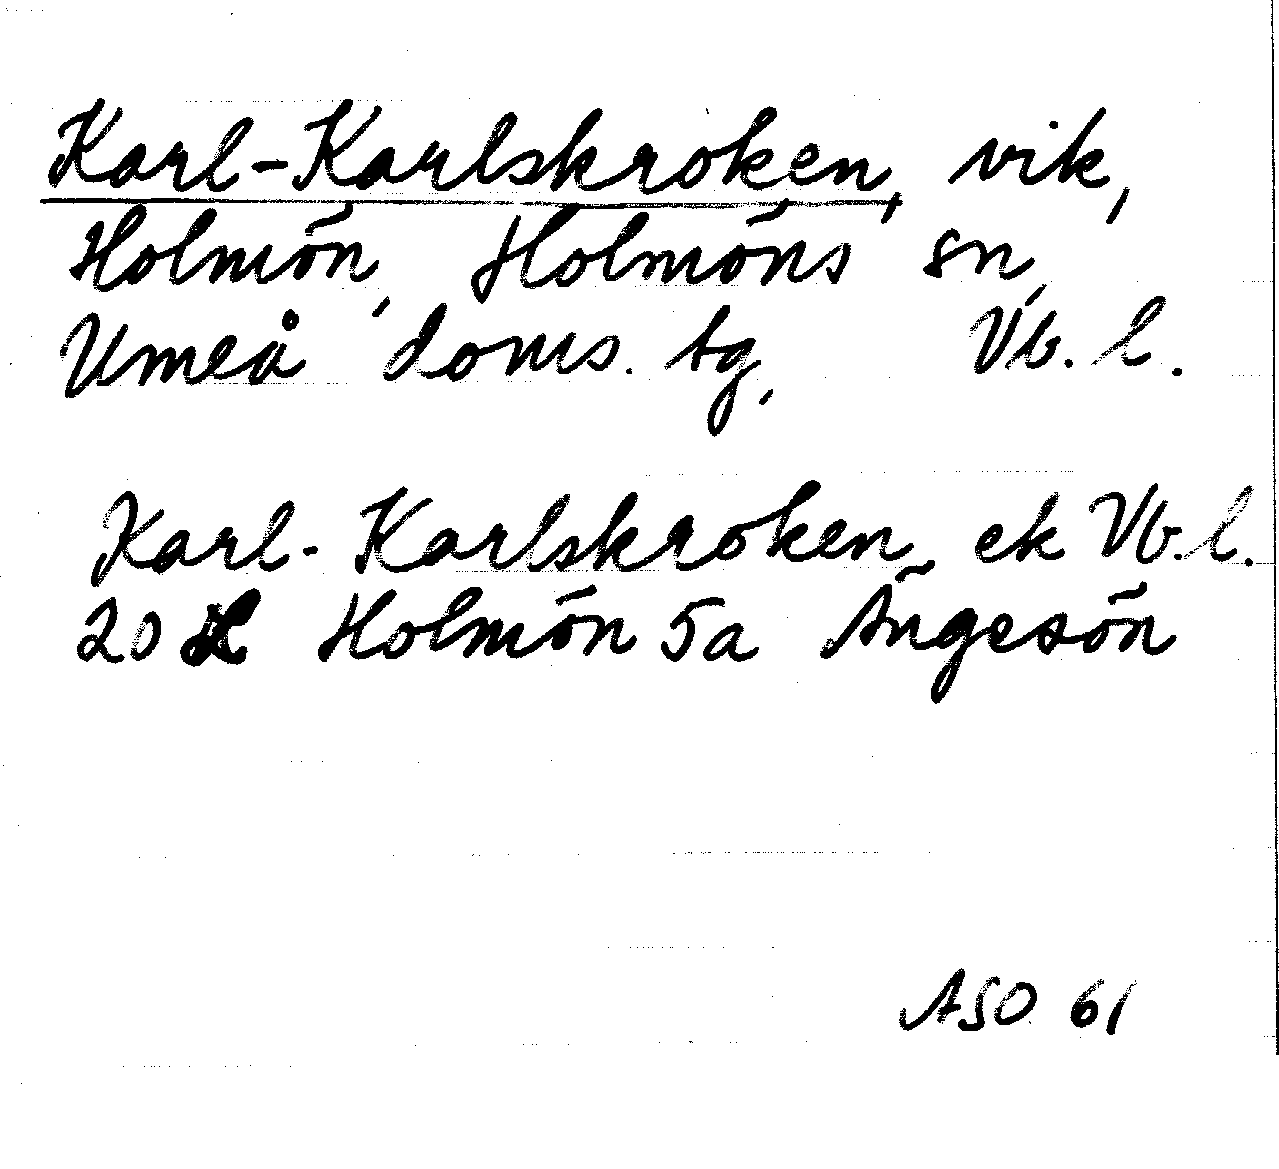 Karl-Karlskroken, vik,
Holmön, Holmöns sn,
Umeå doms. tg, Vb. l.
Karl-Karlskroken ek Vb. l.
20 L Holmön 5a Ängesön
ASO 61